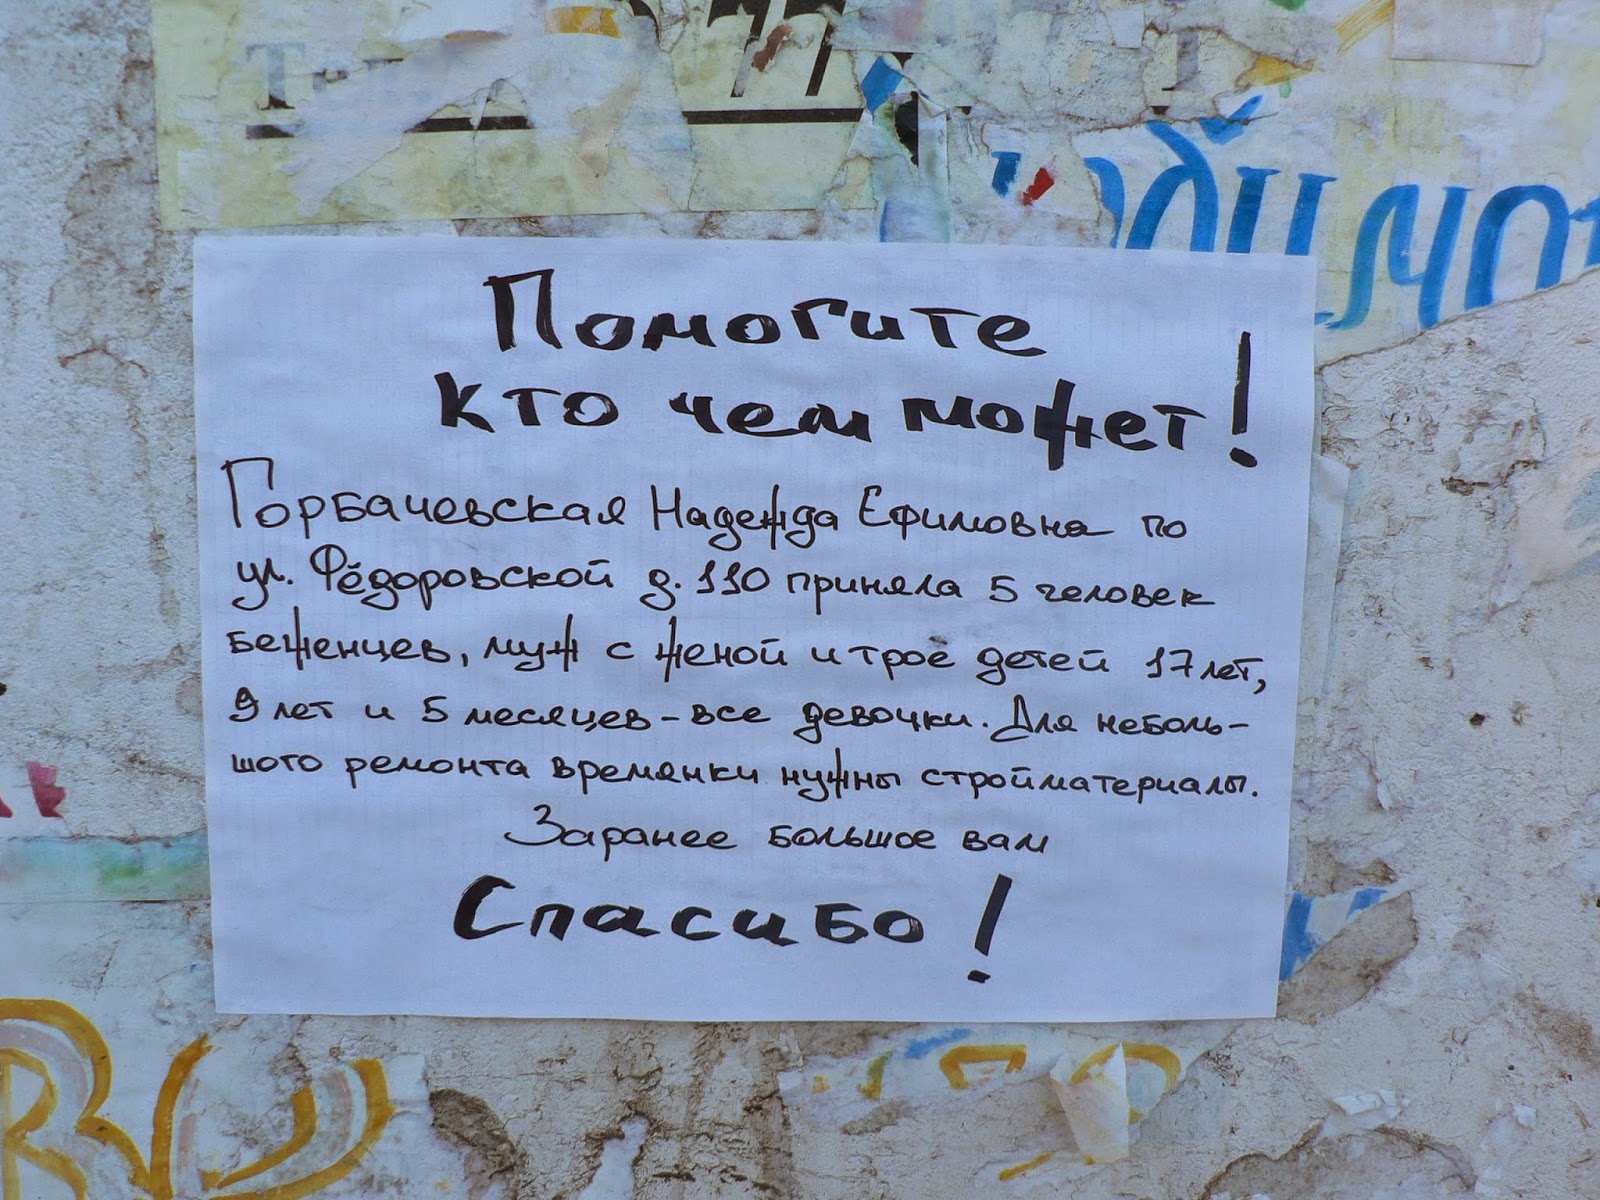 77
Помогите
кто чем может!
Горбачевская Надежда Ефимовна по
ул. Фёдоровской д. 110 приняла 5 человек
беженцев, муж с женой и трое детей 17 лет,
9 лет и 5 месяцев - все девочки. Для неболь-
шого ремонта времянки нужны стройматериалы.
Заранее большое вам
Спасибо!